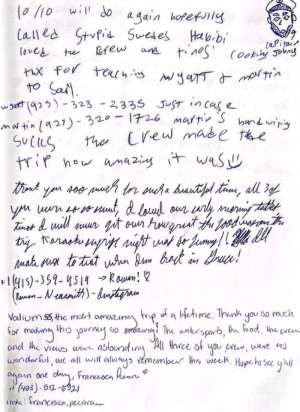 10/10 will do again hopefully
called Stupid Swedes Habibi
loved the Brew and Tinos cooking
Captain Johnny
thx for teaching wyatt & martin
to sail.
wyatt (925)-323-2335 Just in case
martin (925)-320-1726 martin's handwriting
sucks the Crew made the
trip how amazing it was
thank you soo much for such a beautiful time, all 3 of
you were so so sweet, I loved our early morning
times & I will never get over how great the food was on the
trip. Karaoke night was so funny!! I'll
make sure to text when I'm back in Greece!
+1 (415)-359-4519 → Rowan!
- Instagram
the most amazing trip of a lifetime. Thank you so much
for making this journey so amazing! The watersports, the food, the crew
and the views were astounding. All three of you crew, were so
wonderful, we all will always remember this week. Hope to see y'all
again one day, Francesca
(403)-512-8921
insta: francesca.pecora